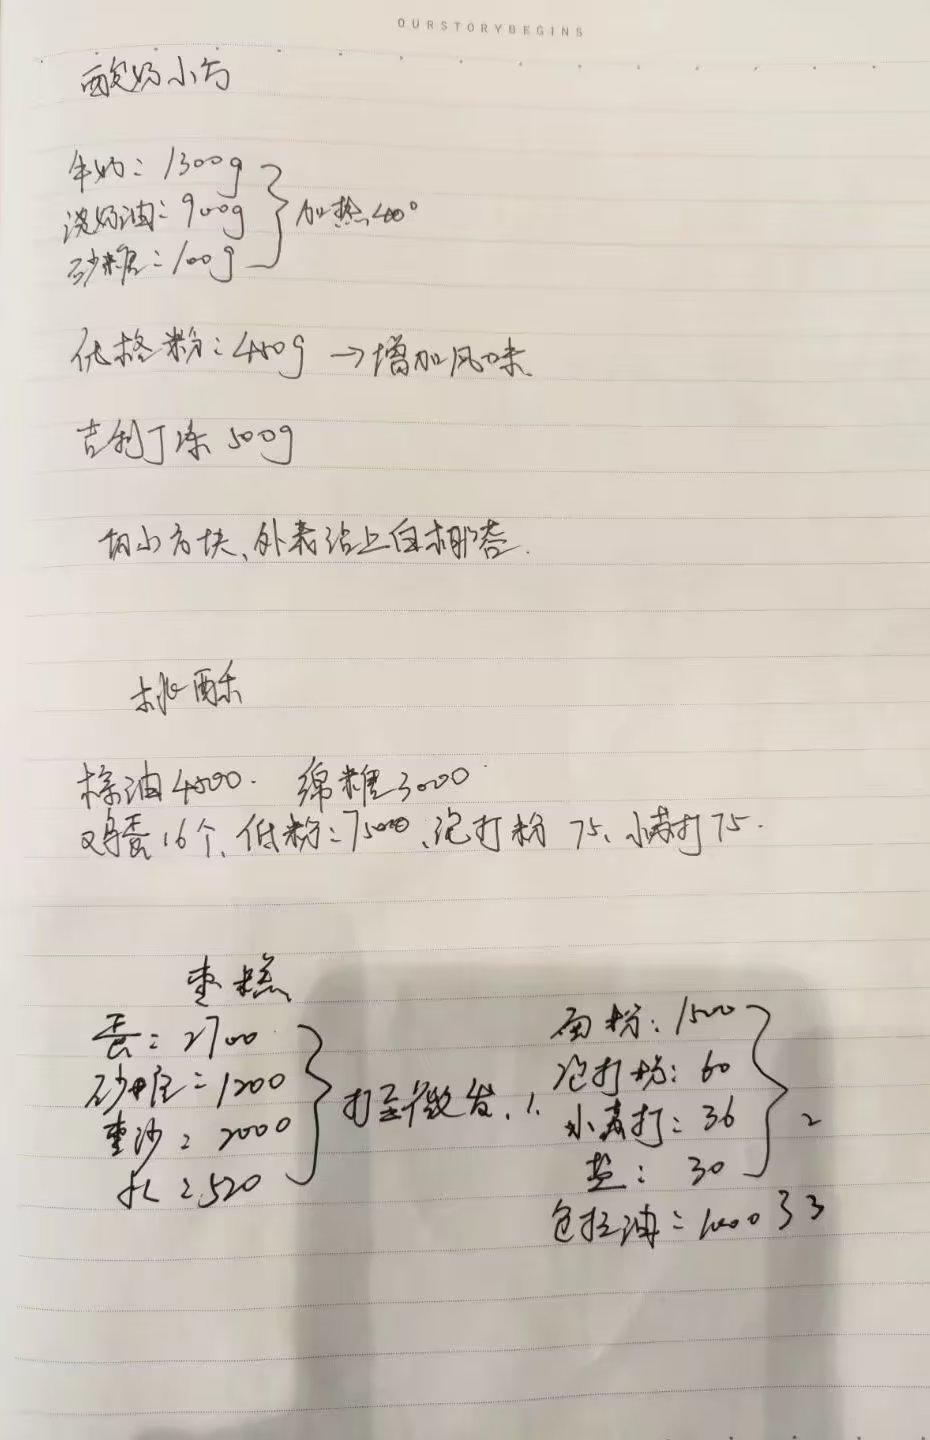 OURSTORYBEGINS
酸奶小方
牛奶：1300g
淡奶油：900g
砂糖：100g
加热40°
优格粉：450g →增加风味
吉利丁冻 500g
切小方块、外表沾上白椰蓉.
桃酥
棕油4500. 绵糖3000
鸡蛋16个、低粉：7500、泡打粉 75、小苏打75.
枣糕
蛋：2700
砂糖：1200
枣沙：2000
水：520
打至微发. 1.
面粉：1500
泡打粉：60
小苏打：36
盐：30
2
色拉油：1000 } 3